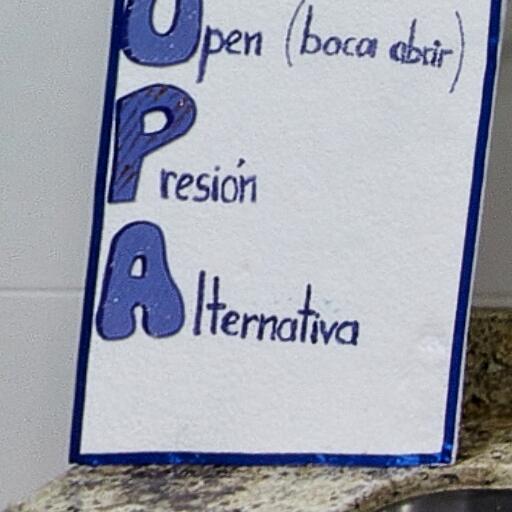 Open (boca abrir)
Presión
Alternativa